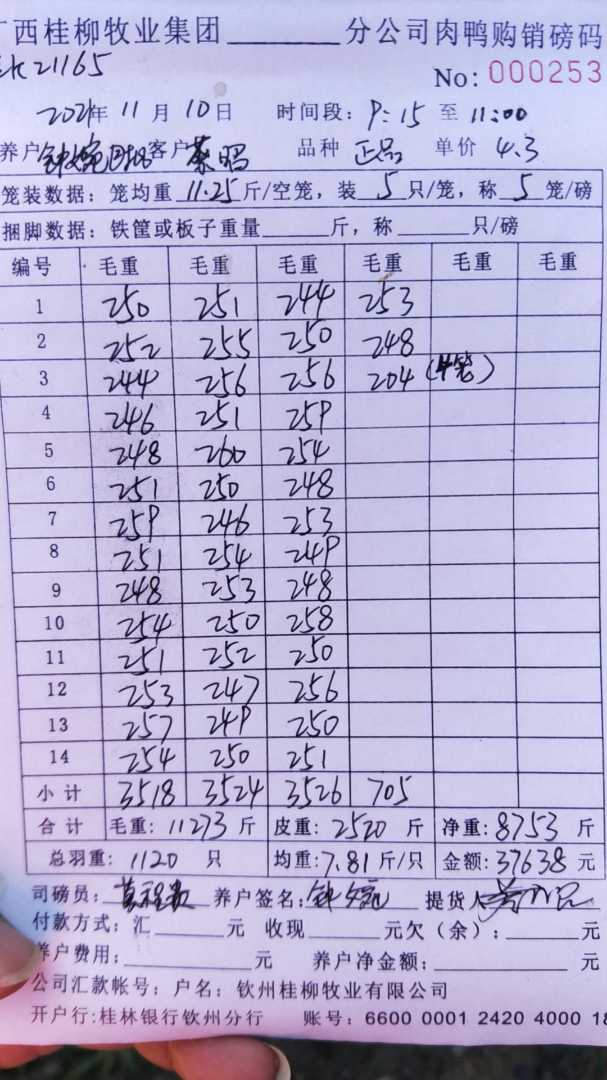 广西桂柳牧业集团________分公司肉鸭购销磅码
21165
No: 000253
2021年 11 月 10 日 时间段: 9:15 至 11:00
养户 钟 客户 蔡昭 品种 正品 单价 4.3
笼装数据: 笼均重 11.25 斤/空笼, 装 5 只/笼, 称 5 笼/磅
捆脚数据: 铁筐或板子重量______斤, 称______只/磅
编号 毛重 毛重 毛重 毛重 毛重 毛重
1 250 251 244 253
2 252 255 250 248
3 244 256 256 204 (4笼)
4 246 251 259
5 248 260 254
6 251 250 248
7 259 246 253
8 251 254 249
9 248 253 248
10 254 250 258
11 251 252 250
12 253 247 256
13 257 249 250
14 254 250 251
小计 3518 3524 3526 705
合计 毛重: 11273 斤 皮重: 2520 斤 净重: 8753 斤
总羽重: 1120 只 均重: 7.81 斤/只 金额: 37638 元
司磅员: 养户签名: 钟 提货人
付款方式: 汇______元 收现______元欠(余): ______元
养户费用: ______元 养户净金额: ______元
公司汇款帐号: 户名: 钦州桂柳牧业有限公司
开户行: 桂林银行钦州分行 账号: 6600 0001 2420 4000 18